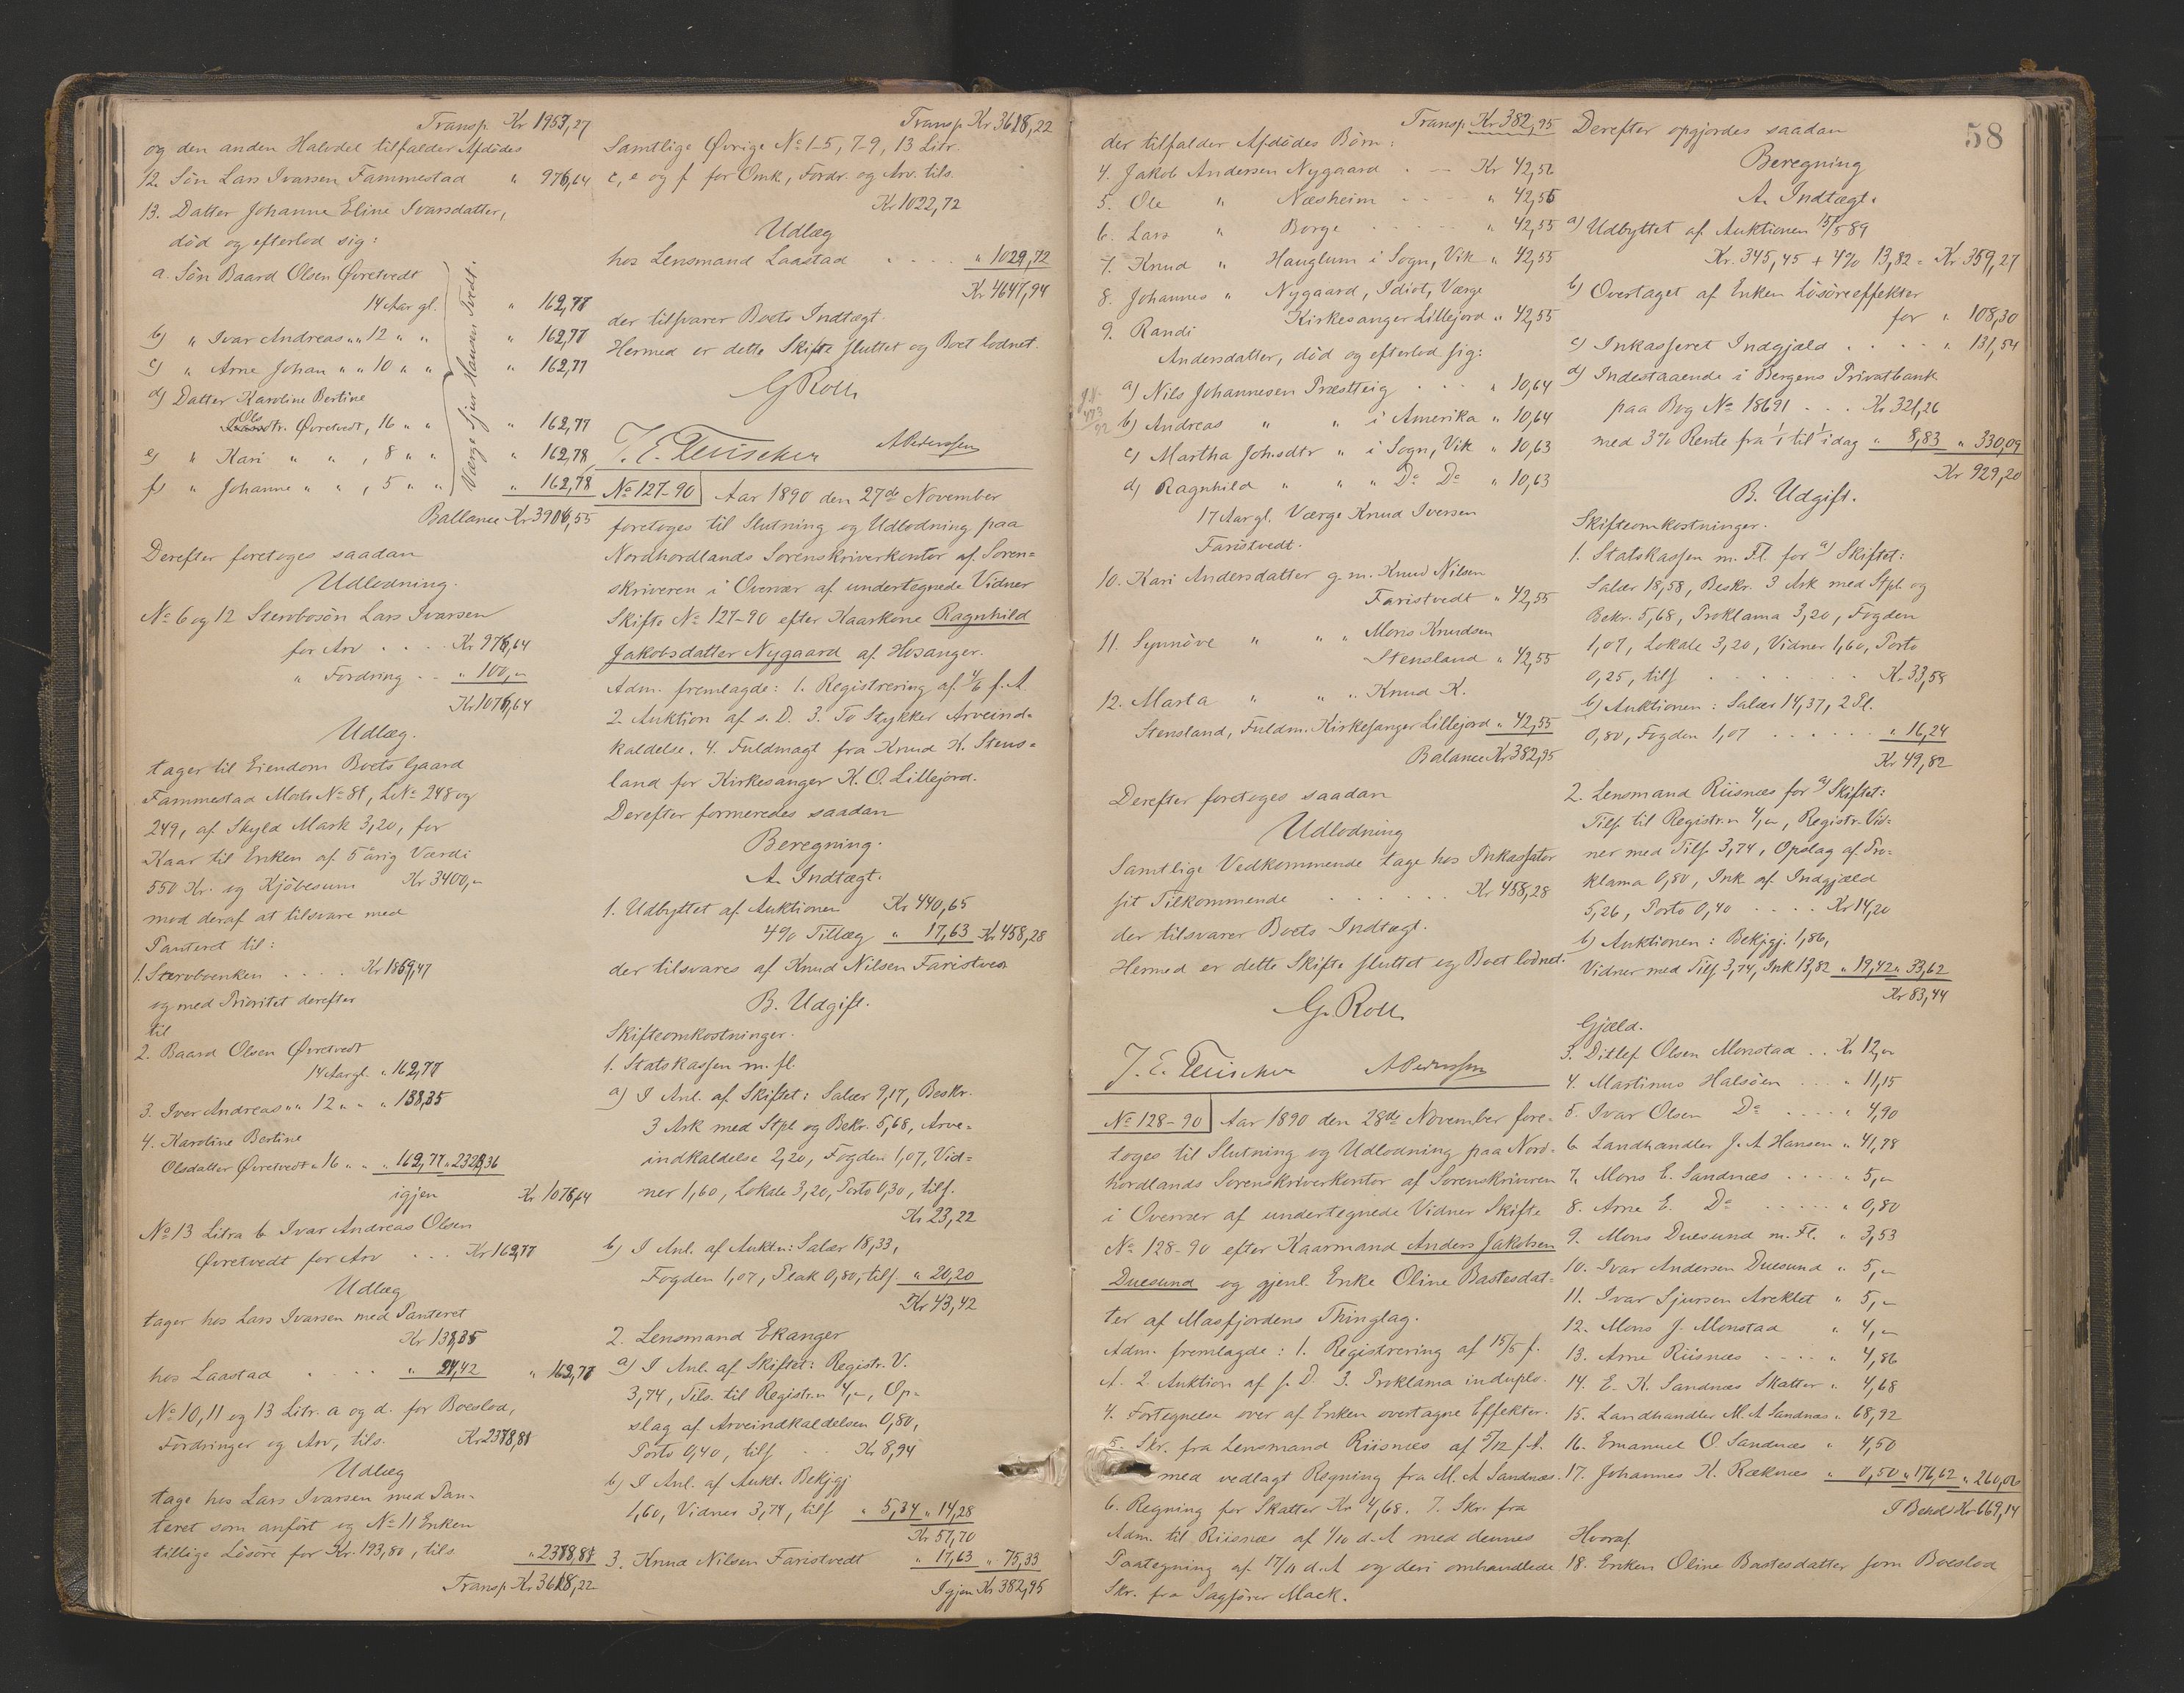 Transp. Kr 1953,27
og den anden Halvdel tilfalder Afdödes
12. Sön Lars Ivarsen Fammestad " 976,64
13. Datter Johanne Eline Ivarsdatter,
död og efterlod sig:
a. Sön Baard Olsen Øvretvedt
14 Aar gl. " 162,77
b) " Ivar Andreas " " 12 " " " 162,77
c) " Arne Johan " " 10 " " " 162,77
d) Datter Karoline Bertine
Olsdtr. Øvretvedt, 16 " " " 162,77
e) " Kari " " , 8 " " " 162,78
f) " Johanne " " , 5 " " " 162,78
Værge Sjur Hansen Tvedt.
Ballance Kr 3906,55
Derefter foretoges saadan
Udlodning.
No 6 og 12 Stervbosön Lars Ivarsen
for Arv . . . . Kr 976,64
" Fordring . . " 100,"
Kr 1076,64
Udlæg.
tager til Eiendom Boets Gaard
Fammestad Matr No 81, LNo 248 og
249, af Skyld Mark 3,20, for
Kaar til Enken af 5 årig Værdi
550 Kr. og Kjöbesum Kr 3400,"
mod deraf at tilsvare med
Panteret til:
1. Stervboenken . . . . Kr 1869,47
og med Prioritet derefter
til
2. Baard Olsen Øvretvedt
14 Aar gl. " 162,77
3. Iver Andreas " " 12 " " " 138,35
4. Karoline Bertine
Olsdatter Øvretvedt " 16 " " " 162,77 " 2323,36
igjen Kr 1076,64
No 13 Litra b Ivar Andreas Olsen
Øvretvedt for Arv . . . Kr 162,77
Udlæg
tager hos Lars Ivarsen med Panteret
Kr 138,35
hos Laastad . . . . " 24,42 " 162,77
No 10, 11 og 13 Litr. a og d. for Boeslod,
Fordringer og Arv, tils. Kr 2378,81
Udlæg
tage hos Lars Ivarsen med Pan-
teret som anfört og No 11 Enken
tillige Lösöre for Kr. 193,80, tils. " 2378,81
Transp Kr 3618,22
Transp Kr 3618,22
Samtlige Øvrige No 1-5, 7-9, 13 Litr.
c, e og f for Omk, Fordr. og Arv. tils.
Kr 1022,72
Udlæg
hos Lensmand Laastad . . . . " 1029,72
Kr 4647,94
der tilsvarer Boets Indtægt.
Hermed er dette Skifte sluttet og Boet lodnet.
G Roll
J. E. Teuscher A Pederssen
No 127-90 Aar 1890 den 27de November
foretoges til Slutning og Udlodning paa
Nordhordlands Sorenskriverkontor af Soren=
skriveren i Overvær af undertegnede Vidner
Skifte No 127-90 efter Kaarkone Ragnhild
Jakobsdatter Nygaard af Hosanger.
Adm. fremlagde: 1. Registrering af 4/6 f. A.
2. Auktion af s. D. 3. To Stykker Arveind-
kaldelse. 4. Fuldmagt fra Knud K. Stens=
land for Kirkesanger K. O. Lillejord.
Derefter formeredes saadan
Beregning.
A. Indtægt.
1. Udbyttet af Auktionen Kr 440,65
4% Tillæg " 17,63 Kr 458,28
der tilsvares af Knud Nilsen Faristvedt
B. Udgift.
Skifteomkostninger.
1. Statskassen m. fl.
a) I Anl. af Skiftet: Salær 9,17, Beskr.
3 Ark med Stpl og Bekr. 5,68, Arve=
indkaldelse 2,20, Fogden 1,07, Vid=
ner 1,60, Lokale 3,20, Porto 0,30, tils.
Kr 23,22
b) I Anl. af Auktn: Salær 18,33,
Fogden 1,07, Plak 0,80, tils. " 20,20
Kr 43,42
2. Lensmand Ekanger
a) I Anl. af Skiftet: Registr. V.
3,74, Tils. til Registr. " 4,", Op-
slag af Arveindkaldelsen 0,80,
Porto 0,40, tils . . Kr 8,94
b) I Anl. af Aukt. Bekjgj
1,60, Vidner 3,74, tils " 5,34 " 14,28
Kr 57,70
3. Knud Nilsen Faristvedt " 17,63 " 75,33
Igjen Kr 382,95
Transp Kr 382,95
der tilfalder Afdödes Börn:
4. Jakob Andersen Nygaard . — Kr 42,56
5. Ole " Næsheim . . . . " 42,55
6. Lars " Borge . . . . . " 42,55
7. Knud " Hauglum i Sogn, Vik " 42,55
8. Johannes " Nygaard, Idiot, Værge
Kirkesanger Lillejord " 42,55
9. Randi
Andersdatter, död og efterlod sig:
a) Nils Johannesen Præstteig . . . " 10,64
b) Andreas " " i Amerika " 10,64
c) Martha Joh.sdtr " i Sogn, Vik " 10,63
d) Ragnhild " " " Do Do " 10,63
17 Aar gl. Værge Knud Iversen
Faristvedt.
10. Kari Andersdatter g. m. Knud Nilsen
Faristvedt " 42,55
11. Synnöve " " " Mons Knudsen
Stensland " 42,55
12. Marta " " " Knud K.
Stensland, Fuldm. Kirkesanger Lillejord " 42,55
Balance Kr 382,95
Derefter foretoges saadan
Udlodning
Samtlige Vedkommende tage hos Inkassator
sit Tilkommende . . . . . . Kr 458,28
der tilsvarer Boets Indtægt.
Hermed er dette Skifte sluttet og Boet lodnet.
G. Roll
J. E. Teuscher A Pederssen
No 128-90 Aar 1890 den 28de November fore-
toges til Slutning og Udlodning paa Nord-
hordlands Sorenskriverkontor af Sorenskriveren
i Overvær af undertegnede Vidner Skifte
No 128-90 efter Kaarmand Anders Jakobsen
Duesund og gjenl. Enke Oline Bastesdat=
ter af Masfjordens Thinglag.
Adm. fremlagde: 1. Registrering af 15/5 f.
A. 2. Auktion af s. D. 3. Proklama in duplo.
4. Fortegnelse over af Enken overtagne Effekter.
5. Skr. fra Lensmand Riisnæs af 5/12 f. A.
med vedlagt Regning fra M. A Sandnæs.
6. Regning for Skatter Kr 4,68. 7. Skr. fra
Adm. til Riisnæs af 1/10 d. A med dennes
Paategning af 17/11 d. A og deri omhandlede
Skr. fra Sagförer Mack.
58
Derefter opgjordes saadan
Beregning
A. Indtægt.
a) Udbyttet af Auktionen 15/5 89
Kr. 345,45 + 4% 13,82 = Kr 359,27
b) Overtaget af Enken Lösöreeffekter
for " 108,30
c) Inkasseret Indgjæld . . . . " 131,54
d) Indestaaende i Bergens Privatbank
paa Bog No 18691 . . . Kr 321,26
med 3% Rente fra 1/1 til idag " 8,83 " 330,09
Kr 929,20
B. Udgift.
Skifteomkostninger.
1. Statskassen m. Fl. for a) Skiftet:
Salær 18,58, Beskr. 3 Ark med Stpl og
Bekr. 5,68, Proklama 3,20, Fogden
1,07, Lokale 3,20, Vidner 1,60, Porto
0,25, tils . . . . . . . Kr 33,58
b) Auktionen: Salær 14,37, 2 Pl.
0,80, Fogden 1,07 . . . . . . " 16,24
Kr 49,82
2. Lensmand Riisnæs for a) Skiftet:
Tils. til Registr. " 4,", Registr. Vid=
ner med Tils. 3,74, Opslag af Pro-
klama 0,80, Ink. af Indgjæld
5,26, Porto 0,40 . . . . Kr 14,20
b) Auktionen: Bekjgj. 1,86,
Vidner med Tils 3,74, Ink 13,82 " 19,42 " 33,62
Kr 83,44
Gjæld.
3. Ditlef Olsen Monstad . . Kr 12,"
4. Martinus Halsöen . . . " 11,15
5. Ivar Olsen Do . . . . " 4,90
6. Landhandler J. A Hansen " 41,78
7. Mons E. Sandnæs . . . . " 5,"
8. Arne E. Do . . . . . " 0,80
9. Mons Duesund m. Fl. " 3,53
10. Ivar Andersen Duesund " 5,"
11. Ivar Sjursen Areklet " 5,"
12. Mons J. Monstad " 4,"
13. Arne Riisnæs . . . . " 4,86
14. E. K. Sandnæs Skatter " 4,68
15. Landhandler M. A Sandnæs " 68,92
16. Emanuel O. Sandnæs " 4,50
17. Johannes H. Ræknæs " 0,50 " 176,62 " 260,06
I Behold Kr 669,14
Hvoraf
18. Enken Oline Bastesdatter som Boeslod